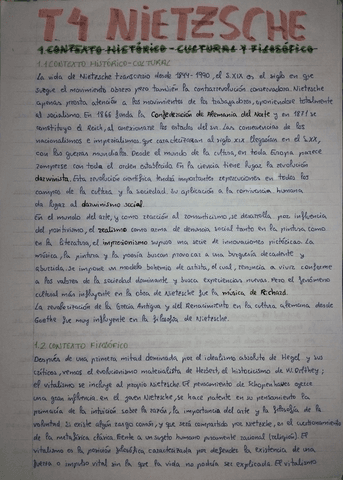 T4 NIETZSCHE
1. CONTEXTO HISTÓRICO-CULTURAL Y FILOSÓFICO
1.1 CONTEXTO HISTÓRICO-CULTURAL
La vida de Nietzsche transcurrió desde 1844-1990, el S.XIX es el siglo en que
surge el movimiento obrero pero también la contrarrevolución conservadora. Nietzsche
apenas presta atención a los movimientos de los trabajadores, oponiéndose totalmente
al socialismo. En 1866 funda la Confederación de Alemania del Norte y en 1871 se
constituyó el Reich, al anexionarse los estados del sur. Las consecuencias de los
nacionalismos e imperialismos que caracterizaban el siglo XIX llegarían en el S.XX,
con las guerras mundiales. Desde el mundo de la cultura, en toda Europa parece
romperse con todo el orden establecido. En la ciencia tiene lugar la revolución
darwinista. Esta revolución científica tendrá importantes repercusiones en todos los
campos de la cultura y la sociedad. Su aplicación a la convivencia humana
da lugar al darwinismo social.
En el mundo del arte, y como reacción al romanticismo, se desarrolla por influencia
del positivismo, el realismo como arma de denuncia social tanto en la pintura como
en la literatura, el impresionismo supuso una serie de innovaciones pictóricas. La
música, la pintura y la poesía buscan provocar a una burguesía decadente y
aburrida. Se impone un modelo bohemio de artista, el cual, renuncia a vivir conforme
a los valores de la sociedad dominante y busca experiencias nuevas. Pero el fenómeno
cultural más influyente en la obra de Nietzsche fue la música de
La revalorización de la Grecia Antigua y del Renacimiento en la cultura alemana desde
Goethe fue muy influyente en la filosofía de Nietzsche.
1.2 CONTEXTO FILOSÓFICO
Después de una primera mitad dominada por el idealismo absoluto de Hegel y sus
críticos, vemos el evolucionismo materialista de el historicismo de W. Dilthey;
el vitalismo se incluye al propio Nietzsche. El pensamiento de Schopenhauer ejerce
una gran influencia en el joven Nietzsche, se hace patente en su pensamiento la
primacía de la intuición sobre la razón, la importancia del arte y la filosofía de la
voluntad. Si existe algún rasgo común, y que será compartido por Nietzsche, es el cuestionamiento
de la metafísica clásica frente a un sujeto humano puramente racional (religión). El
vitalismo es la posición filosófica caracterizada por defender la existencia de una
fuerza o impulso vital sin la que la vida no podría ser explicada. El vitalismo